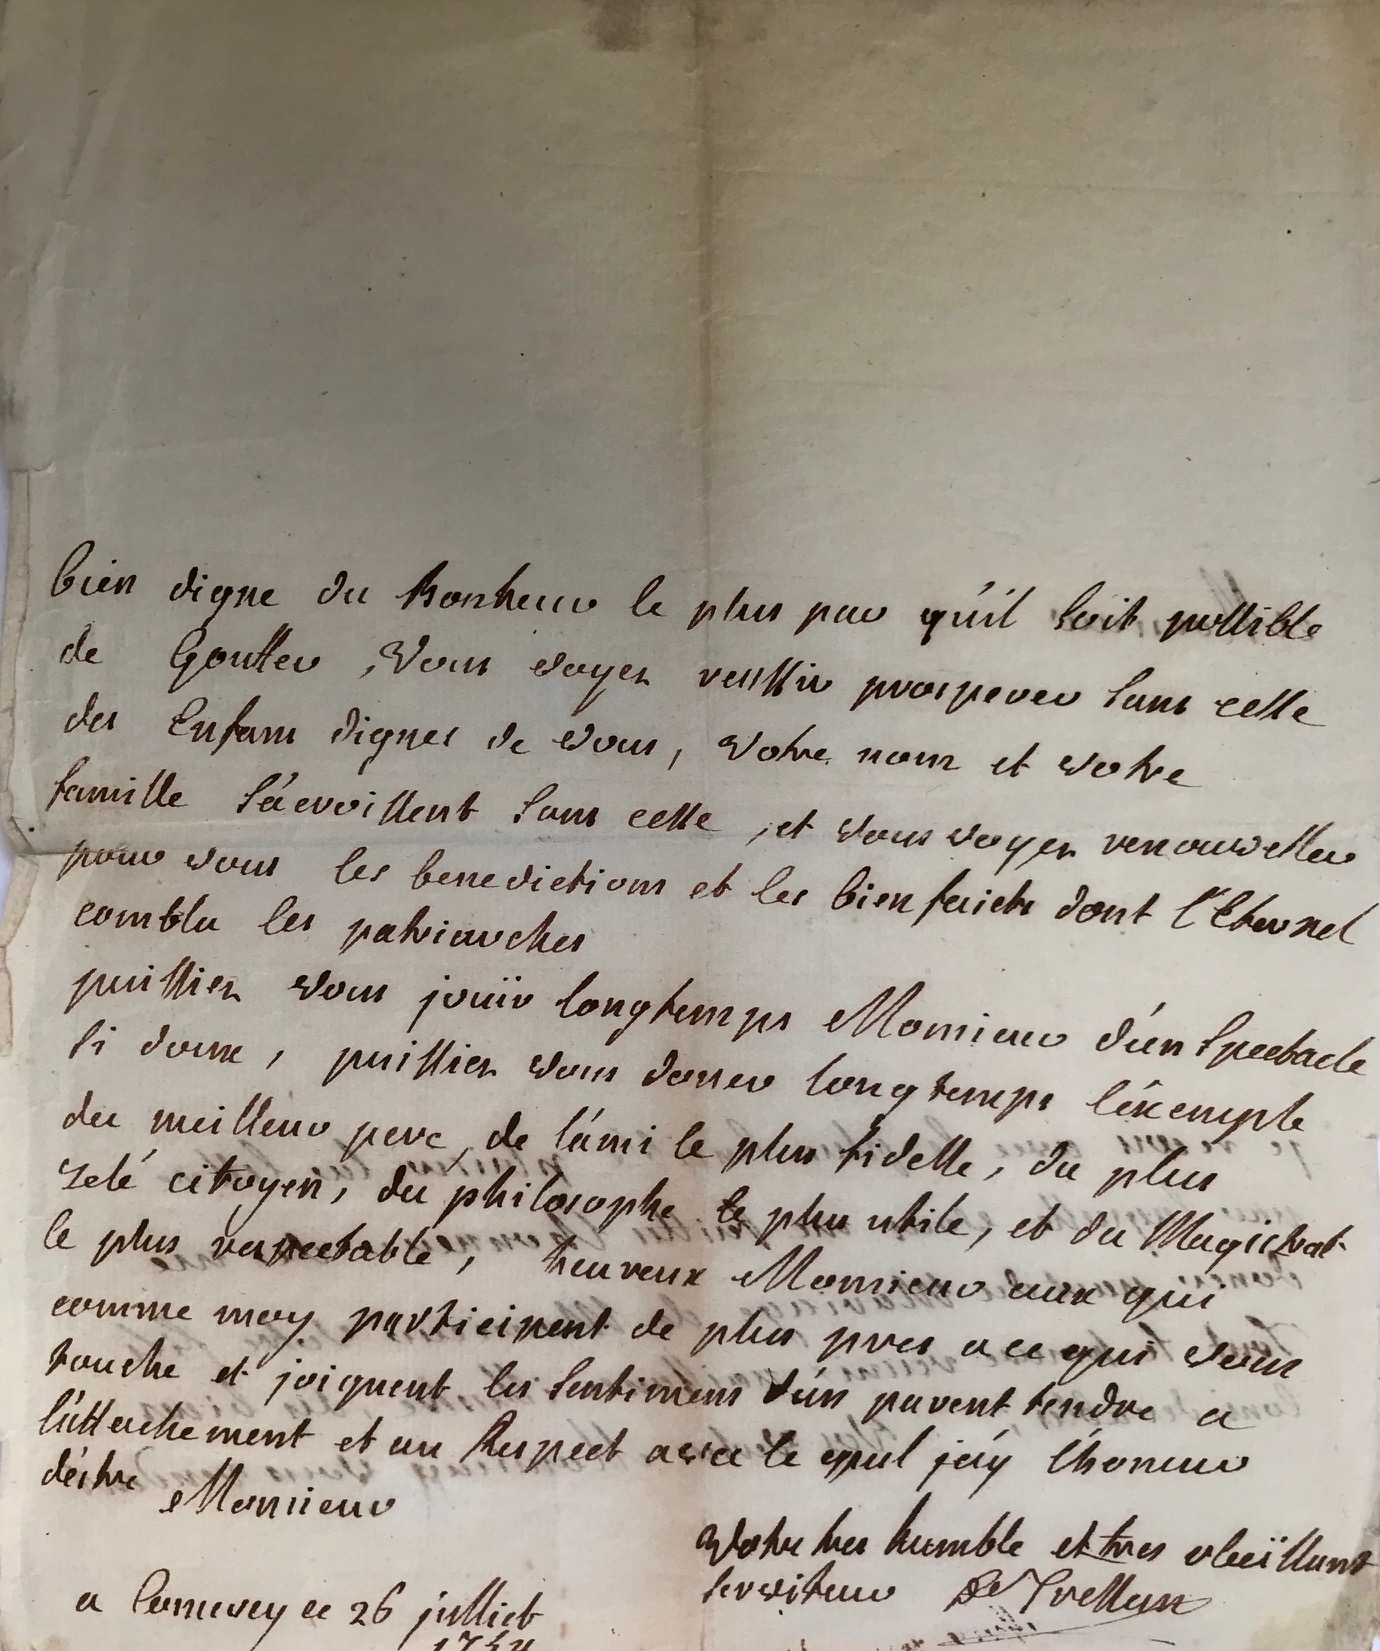 bien digne du Bonheur le plus pur qu'il soit possible
de Gouter, Vous voyez reussir prosperer sans cesse
des Enfans dignes de vous, Votre nom et votre
famille s'acroissent sans cesse, et vous voyez renouveller
pour vous les benedictions et les bienfaicts dont l'Eternel
combla les patriarches
puissiez vous jouïr longtemps Monsieur d'un Spectacle
si doux, puissiez vous donner longtemps l'éxemple
du meilleur pere, de l'ami le plus fidelle, du plus
zelé citoyen, du philosophe le plus utile, et du Magistrat
le plus respectable, heureux Monsieur ceux qui
comme moy participent de plus pres a ce qui vous
touche et joignent les sentimens d'un parent tendre a
l'attachement et au Respect avec le quel j'ay l'honneur
d'estre Monsieur
Votre tres humble et tres obeïssant
serviteur De
a ce 26 julliet